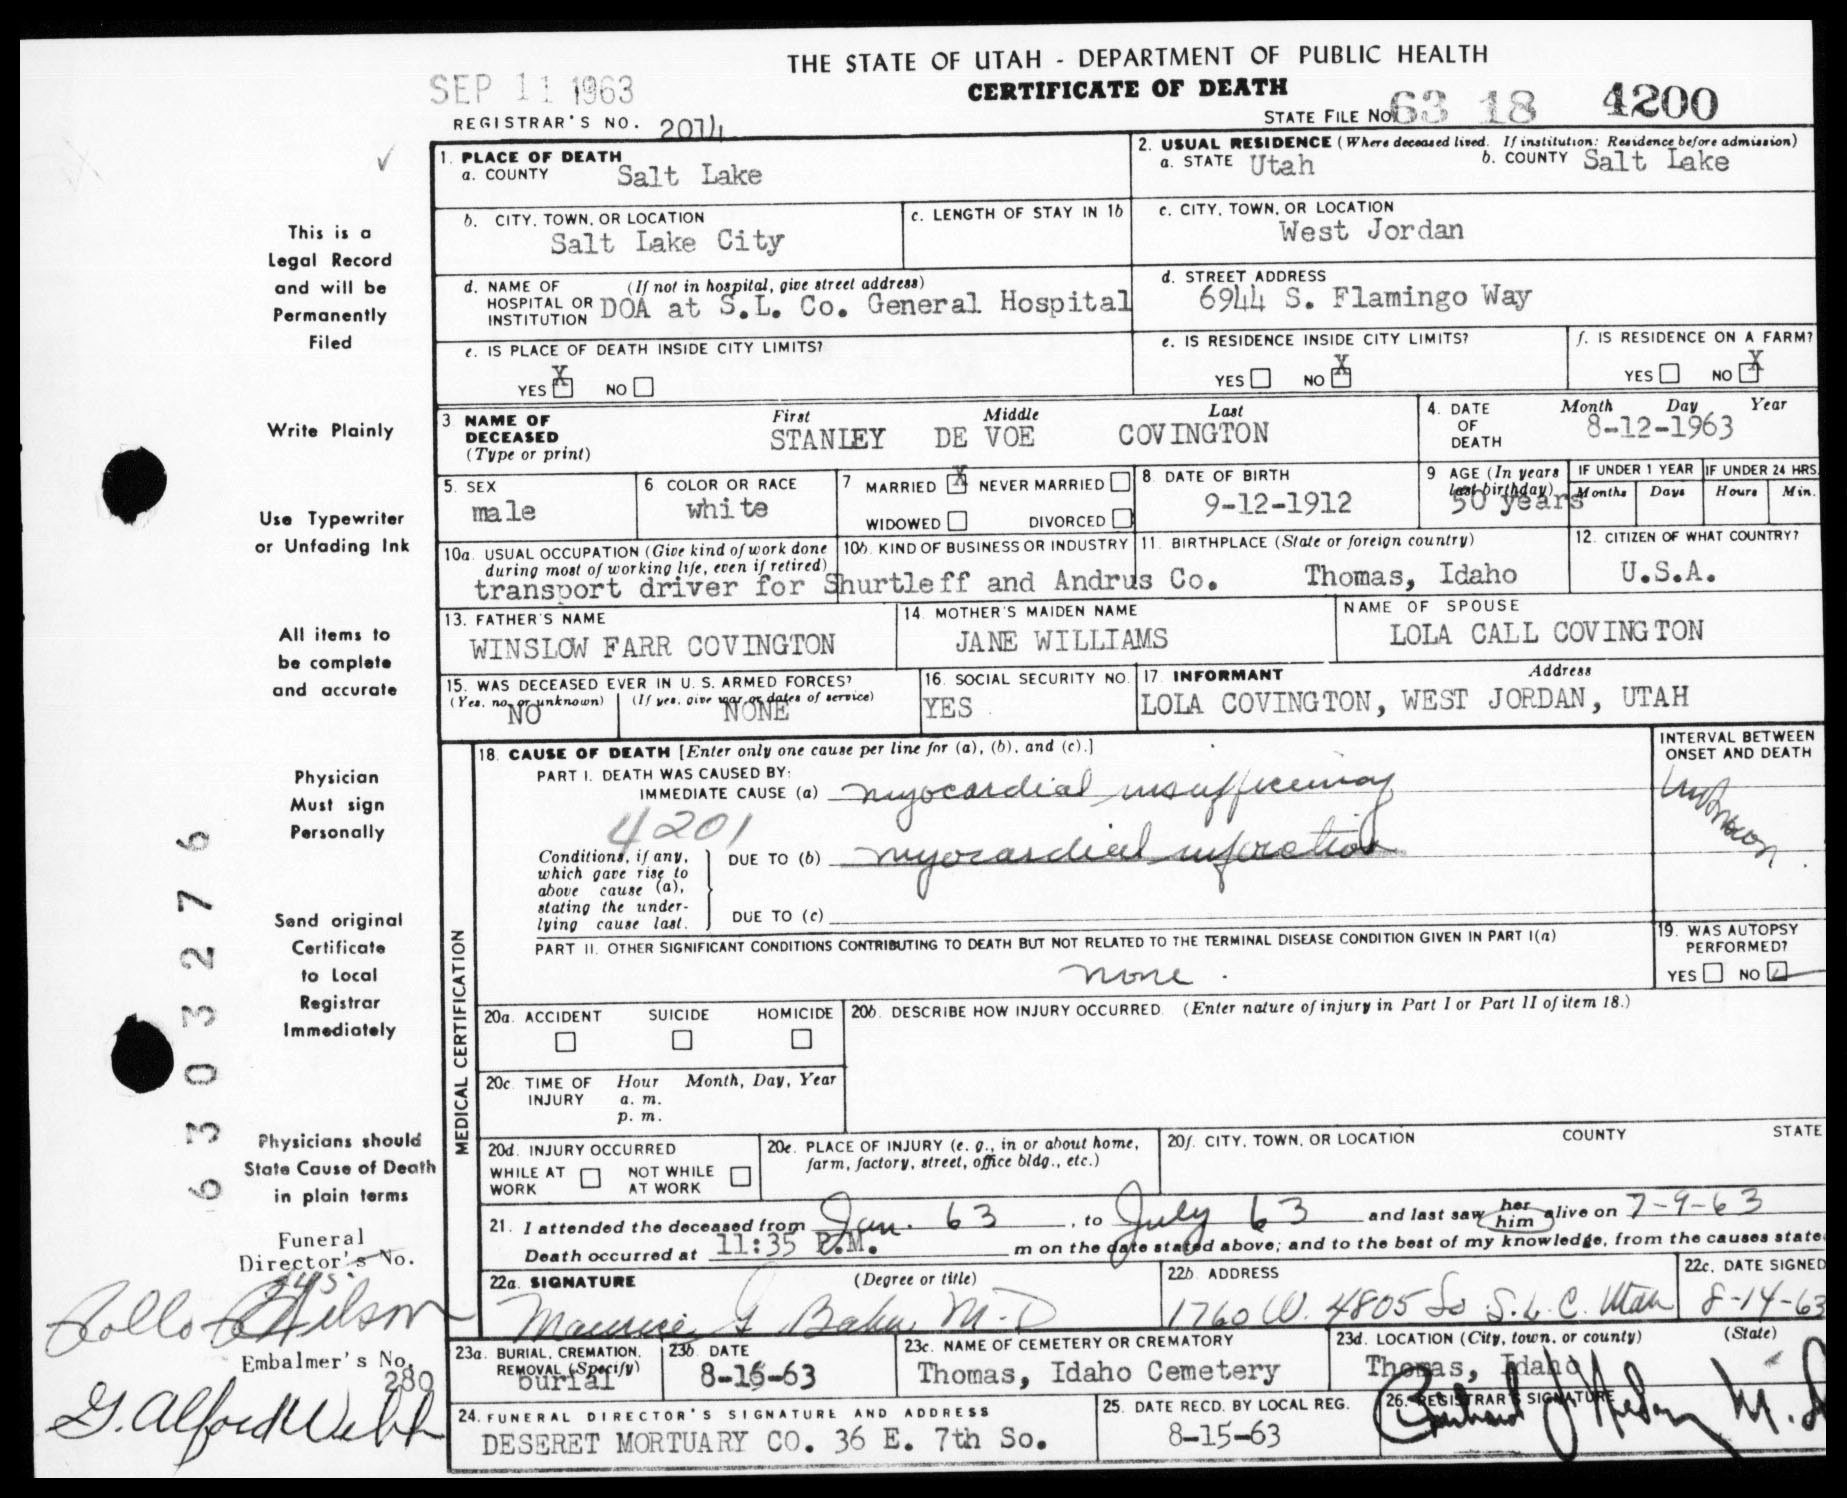 THE STATE OF UTAH - DEPARTMENT OF PUBLIC HEALTH
SEP 11 1963
CERTIFICATE OF DEATH
REGISTRAR'S NO. 2014
STATE FILE NO. 63 18 4200
1. PLACE OF DEATH
a. COUNTY Salt Lake
2. USUAL RESIDENCE (Where deceased lived. If institution: Residence before admission)
a. STATE Utah b. COUNTY Salt Lake
b. CITY, TOWN, OR LOCATION
Salt Lake City
c. LENGTH OF STAY IN 1b
c. CITY, TOWN, OR LOCATION
West Jordan
d. NAME OF HOSPITAL OR INSTITUTION (If not in hospital, give street address)
DOA at S.L. Co. General Hospital
d. STREET ADDRESS
6944 S. Flamingo Way
e. IS PLACE OF DEATH INSIDE CITY LIMITS?
YES X NO
e. IS RESIDENCE INSIDE CITY LIMITS?
YES NO X
f. IS RESIDENCE ON A FARM?
YES NO X
3 NAME OF DECEASED (Type or print)
First Middle Last
STANLEY DE VOE COVINGTON
4. DATE OF DEATH
Month Day Year
8-12-1963
5. SEX
male
6 COLOR OR RACE
white
7 MARRIED X NEVER MARRIED
WIDOWED DIVORCED
8 DATE OF BIRTH
9-12-1912
9 AGE (In years last birthday)
50 years
IF UNDER 1 YEAR
Months Days
IF UNDER 24 HRS.
Hours Min.
10a. USUAL OCCUPATION (Give kind of work done during most of working life, even if retired)
10b. KIND OF BUSINESS OR INDUSTRY
transport driver for Shurtleff and Andrus Co.
11. BIRTHPLACE (State or foreign country)
Thomas, Idaho
12. CITIZEN OF WHAT COUNTRY?
U.S.A.
13. FATHER'S NAME
WINSLOW FARR COVINGTON
14. MOTHER'S MAIDEN NAME
JANE WILLIAMS
NAME OF SPOUSE
LOLA CALL COVINGTON
15. WAS DECEASED EVER IN U. S. ARMED FORCES?
(Yes, no, or unknown) (If yes, give war or dates of service)
NO NONE
16. SOCIAL SECURITY NO.
YES
17. INFORMANT Address
LOLA COVINGTON, WEST JORDAN, UTAH
MEDICAL CERTIFICATION
18. CAUSE OF DEATH [Enter only one cause per line for (a), (b), and (c).]
INTERVAL BETWEEN ONSET AND DEATH
PART I. DEATH WAS CAUSED BY:
IMMEDIATE CAUSE (a) myocardial insufficiency
unknown
4201
Conditions, if any, which gave rise to above cause (a), stating the underlying cause last.
DUE TO (b) myocardial infarction
DUE TO (c)
PART II. OTHER SIGNIFICANT CONDITIONS CONTRIBUTING TO DEATH BUT NOT RELATED TO THE TERMINAL DISEASE CONDITION GIVEN IN PART I(a)
none.
19. WAS AUTOPSY PERFORMED?
YES NO
20a. ACCIDENT SUICIDE HOMICIDE
20b. DESCRIBE HOW INJURY OCCURRED. (Enter nature of injury in Part I or Part II of item 18.)
20c. TIME OF INJURY Hour Month, Day, Year
a. m.
p. m.
20d. INJURY OCCURRED
WHILE AT WORK NOT WHILE AT WORK
20e. PLACE OF INJURY (e. g., in or about home, farm, factory, street, office bldg., etc.)
20f. CITY, TOWN, OR LOCATION COUNTY STATE
21. I attended the deceased from Jan. 63, to July 63 and last saw her him alive on 7-9-63
Death occurred at 11:35 P.M. m on the date stated above; and to the best of my knowledge, from the causes state
22a. SIGNATURE (Degree or title)
Maurice G Baker M.D
22b. ADDRESS
1760 W. 4805 So S.L.C. Utah
22c. DATE SIGNED
8-14-63
23a. BURIAL, CREMATION, REMOVAL (Specify)
burial
23b. DATE
8-16-63
23c. NAME OF CEMETERY OR CREMATORY
Thomas, Idaho Cemetery
23d. LOCATION (City, town, or county) (State)
Thomas, Idaho
24. FUNERAL DIRECTOR'S SIGNATURE AND ADDRESS
DESERET MORTUARY CO. 36 E. 7th So.
25. DATE RECD. BY LOCAL REG.
8-15-63
26. REGISTRAR'S SIGNATURE
This is a
Legal Record
and will be
Permanently
Filed
Write Plainly
Use Typewriter
or Unfading Ink
All items to
be complete
and accurate
Physician
Must sign
Personally
Send original
Certificate
to Local
Registrar
Immediately
Physicians should
State Cause of Death
in plain terms
6303276
Funeral
Director's No.
Embalmer's No.
280
G. Alford Webb